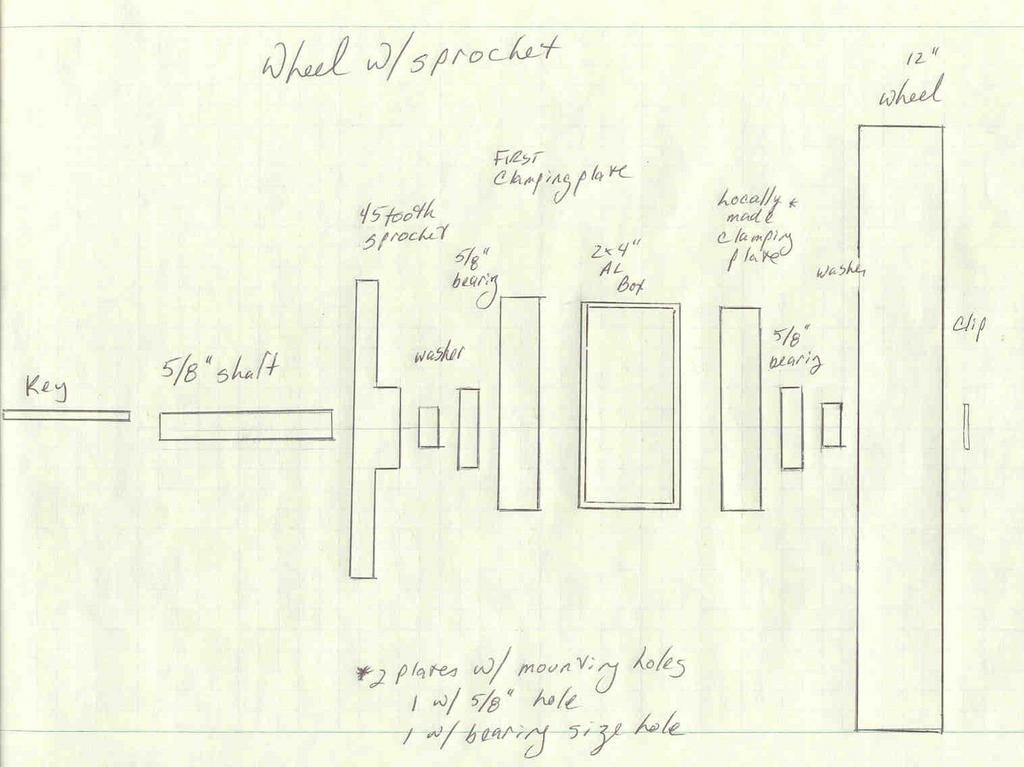 Wheel w/ sprocket
12"
wheel
First
Clamping plate
45 tooth
sprocket
Locally *
made
clamping
plate
2x4"
AL
Box
5/8"
bearing
washer
clip
5/8"
bearing
washer
5/8" shaft
Key
*2 plates w/ mounting holes
1 w/ 5/8" hole
1 w/ bearing size hole